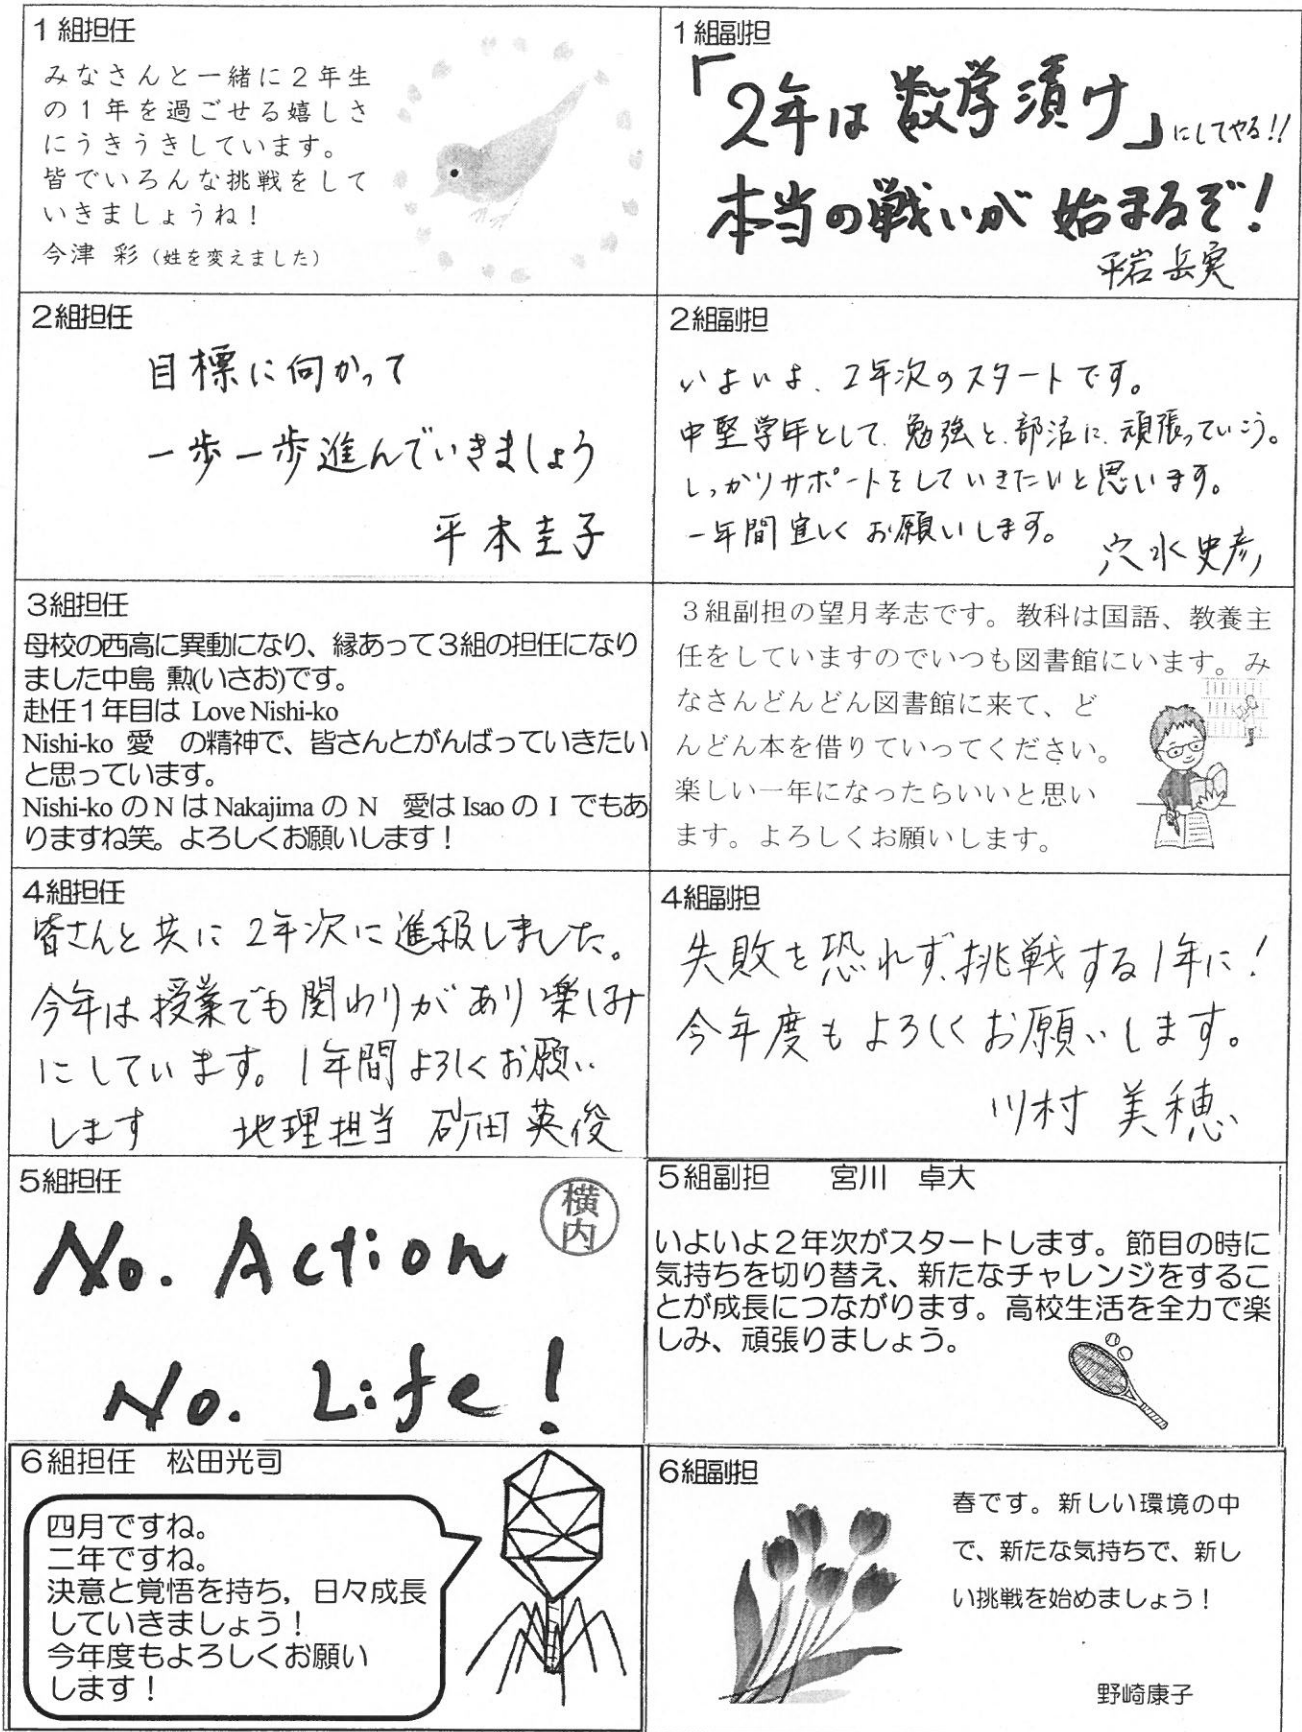 1組担任
みなさんと一緒に２年生
の１年を過ごせる嬉しさ
にうきうきしています。
皆でいろんな挑戦をして
いきましょうね！
今津 彩（姓を変えました）
1組副担
「2年は数学漬け」にしてやる!!
本当の戦いが始まるぞ!
平岩岳実
２組担任
目標に向かって
一歩一歩進んでいきましょう
平本圭子
２組副担
いよいよ、2年次のスタートです。
中堅学年として、勉強と、部活に、頑張っていこう。
しっかりサポートをしていきたいと思います。
一年間宜しくお願いします。
穴水史彦
３組担任
母校の西高に異動になり、縁あって３組の担任になり
ました中島 勲(いさお)です。
赴任１年目は Love Nishi-ko
Nishi-ko 愛 の精神で、皆さんとがんばっていきたい
と思っています。
Nishi-ko の N は Nakajima の N 愛は Isao の I でもあ
りますね笑。よろしくお願いします！
３組副担の望月孝志です。教科は国語、教養主
任をしていますのでいつも図書館にいます。み
なさんどんどん図書館に来て、ど
んどん本を借りていってください。
楽しい一年になったらいいと思い
ます。よろしくお願いします。
４組担任
皆さんと共に2年次に進級しました。
今年は授業でも関わりがあり楽しみ
にしています。1年間よろしくお願い
します 地理担当 砂田英俊
４組副担
失敗を恐れず、挑戦する1年に!
今年度もよろしくお願いします。
川村 美穂
５組担任
横内
No. Action
No. Life!
５組副担 宮川 卓大
いよいよ２年次がスタートします。節目の時に
気持ちを切り替え、新たなチャレンジをするこ
とが成長につながります。高校生活を全力で楽
しみ、頑張りましょう。
６組担任 松田光司
四月ですね。
二年ですね。
決意と覚悟を持ち，日々成長
していきましょう！
今年度もよろしくお願い
します！
６組副担
春です。新しい環境の中
で、新たな気持ちで、新し
い挑戦を始めましょう！
野崎康子